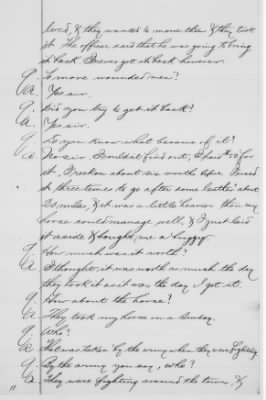 loved, & they wanted to move them & they took
it. The officer said that he was going to bring
it back. I never got it back however.
Q. To move wounded men?
A. Yes sir.
Q. Did you try to get it back?
A. Yes sir.
Q. Do you know what became of it?
A. No sir. I couldnt find out, I paid $50 for
it, I reckon about six months before. I used
it three times to go after some leather about
20 miles, & it was a little heavier than my
horse could manage well, & I just laid
it aside & bought me a buggy.
Q. How much was it worth?
A. I thought it was worth as much the day
they took it as it was the day I got it.
Q. How about the horse?
A. They took my horse on a Sunday.
Q. Who?
A. He was taken by the army when they were fighting
Q. By the army you say, who?
A. They were fighting around the town, &